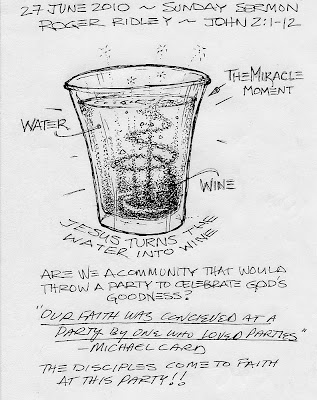 27 JUNE 2010 ~ SUNDAY SERMON
ROGER RIDLEY ~ JOHN 2:1-12
THE MIRACLE
MOMENT
WATER
WINE
JESUS TURNS THE
WATER INTO WINE
ARE WE A COMMUNITY THAT WOULD
THROW A PARTY TO CELEBRATE GOD'S
GOODNESS?
"OUR FAITH WAS CONCIEVED AT A
PARTY BY ONE WHO LOVED PARTIES"
~MICHAEL CARD
THE DISCIPLES COME TO FAITH
AT THIS PARTY!!